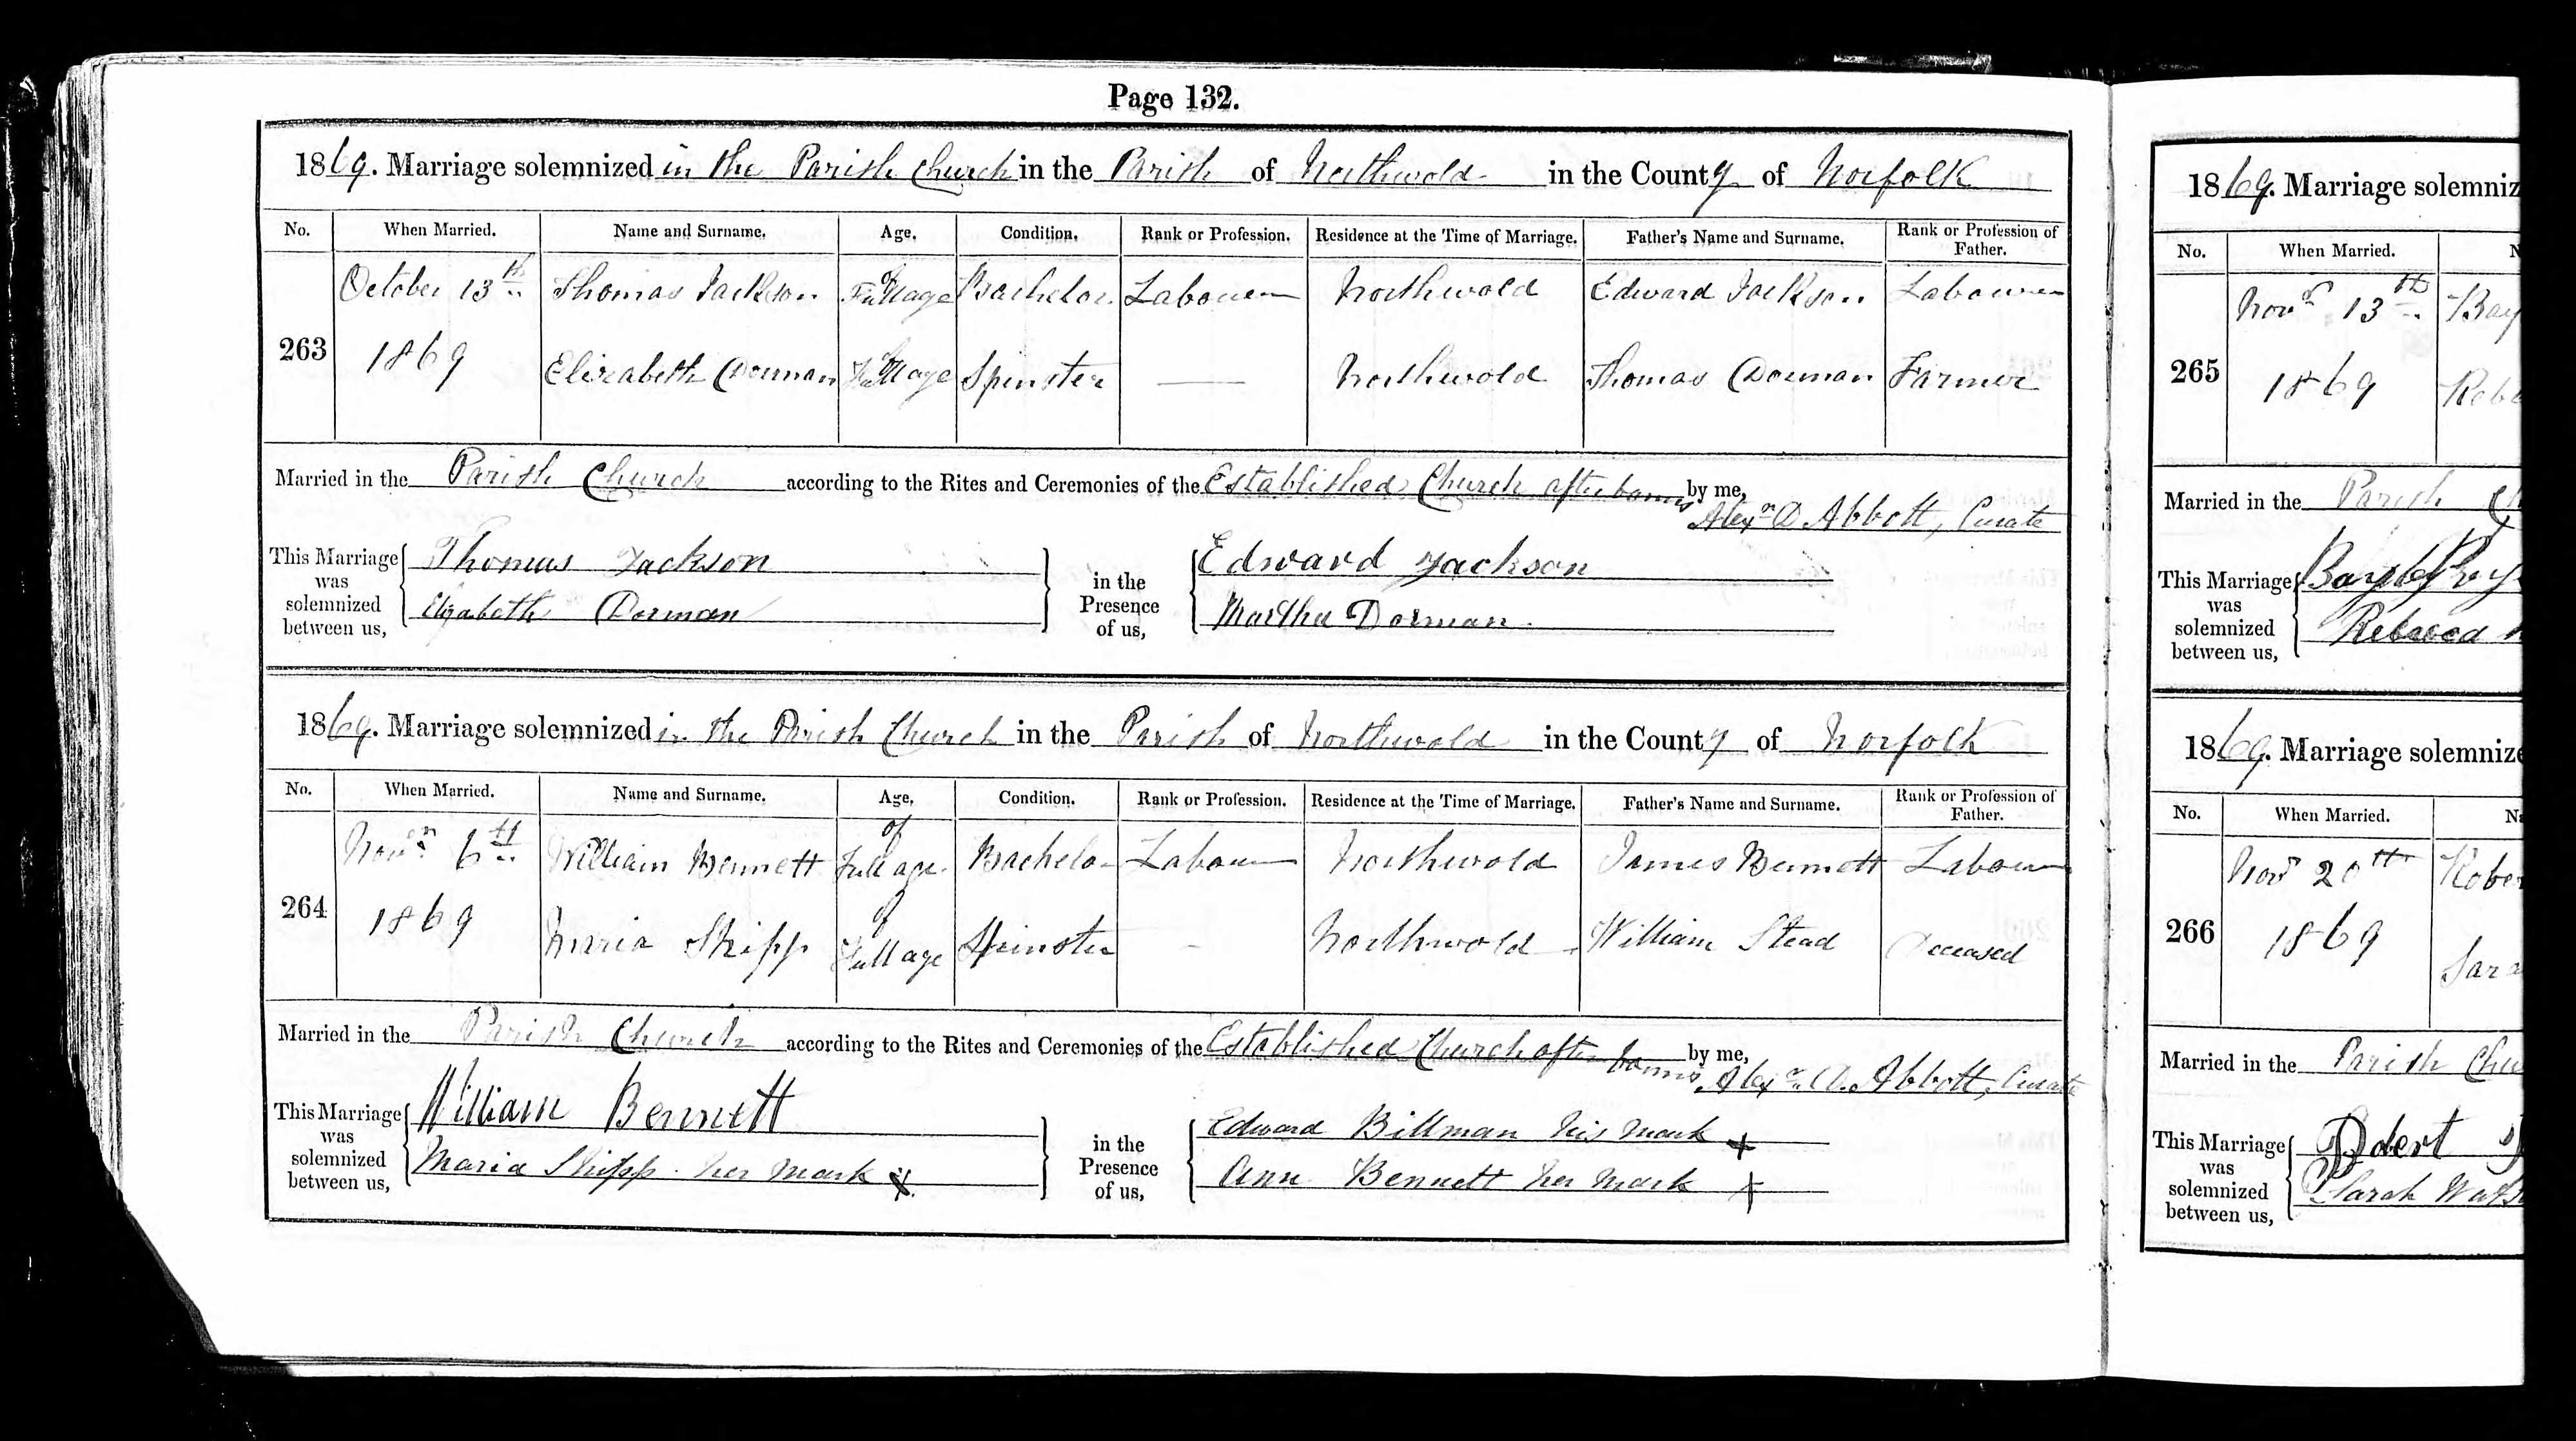 Page 132.
1869. Marriage solemnized in the Parish Church in the Parish of Northwold in the County of Norfolk
No. When Married. Name and Surname. Age. Condition. Rank or Profession. Residence at the Time of Marriage. Father's Name and Surname. Rank or Profession of Father.
263 October 13th 1869 Thomas Jackson of Full age Bachelor Labourer Northwold Edward Jackson Labourer
Elizabeth Dorman of Full age Spinster — Northwold Thomas Dorman Farmer
Married in the Parish Church according to the Rites and Ceremonies of the Established Church after banns by me,
Alexr D. Abbott, Curate
This Marriage was solemnized between us, Thomas Jackson
Elizabeth Dorman
in the Presence of us, Edward Jackson
Martha Dorman
1869. Marriage solemnized in the Parish Church in the Parish of Northwold in the County of Norfolk
No. When Married. Name and Surname. Age. Condition. Rank or Profession. Residence at the Time of Marriage. Father's Name and Surname. Rank or Profession of Father.
264 Novr 6th 1869 William Bennett of Full age Bachelor Labourer Northwold James Bennett Labourer
Maria Shipp of Full age Spinster - Northwold William Stead Deceased
Married in the Parish Church according to the Rites and Ceremonies of the Established Church after banns by me,
Alexr D. Abbott, Curate
This Marriage was solemnized between us, William Bennett
Maria Shipp her mark X
in the Presence of us, Edward Billman his mark +
Ann Bennett her mark +
1869. Marriage solemniz
No. When Married. N
265 Novr 13th 1869 Bay
Rebe
Married in the Parish Ch
This Marriage was solemnized between us,
Rebecca
1869. Marriage solemnize
No. When Married. Na
266 Novr 20th 1869 Rober
Sara
Married in the Parish Chu
This Marriage was solemnized between us,
Sarah